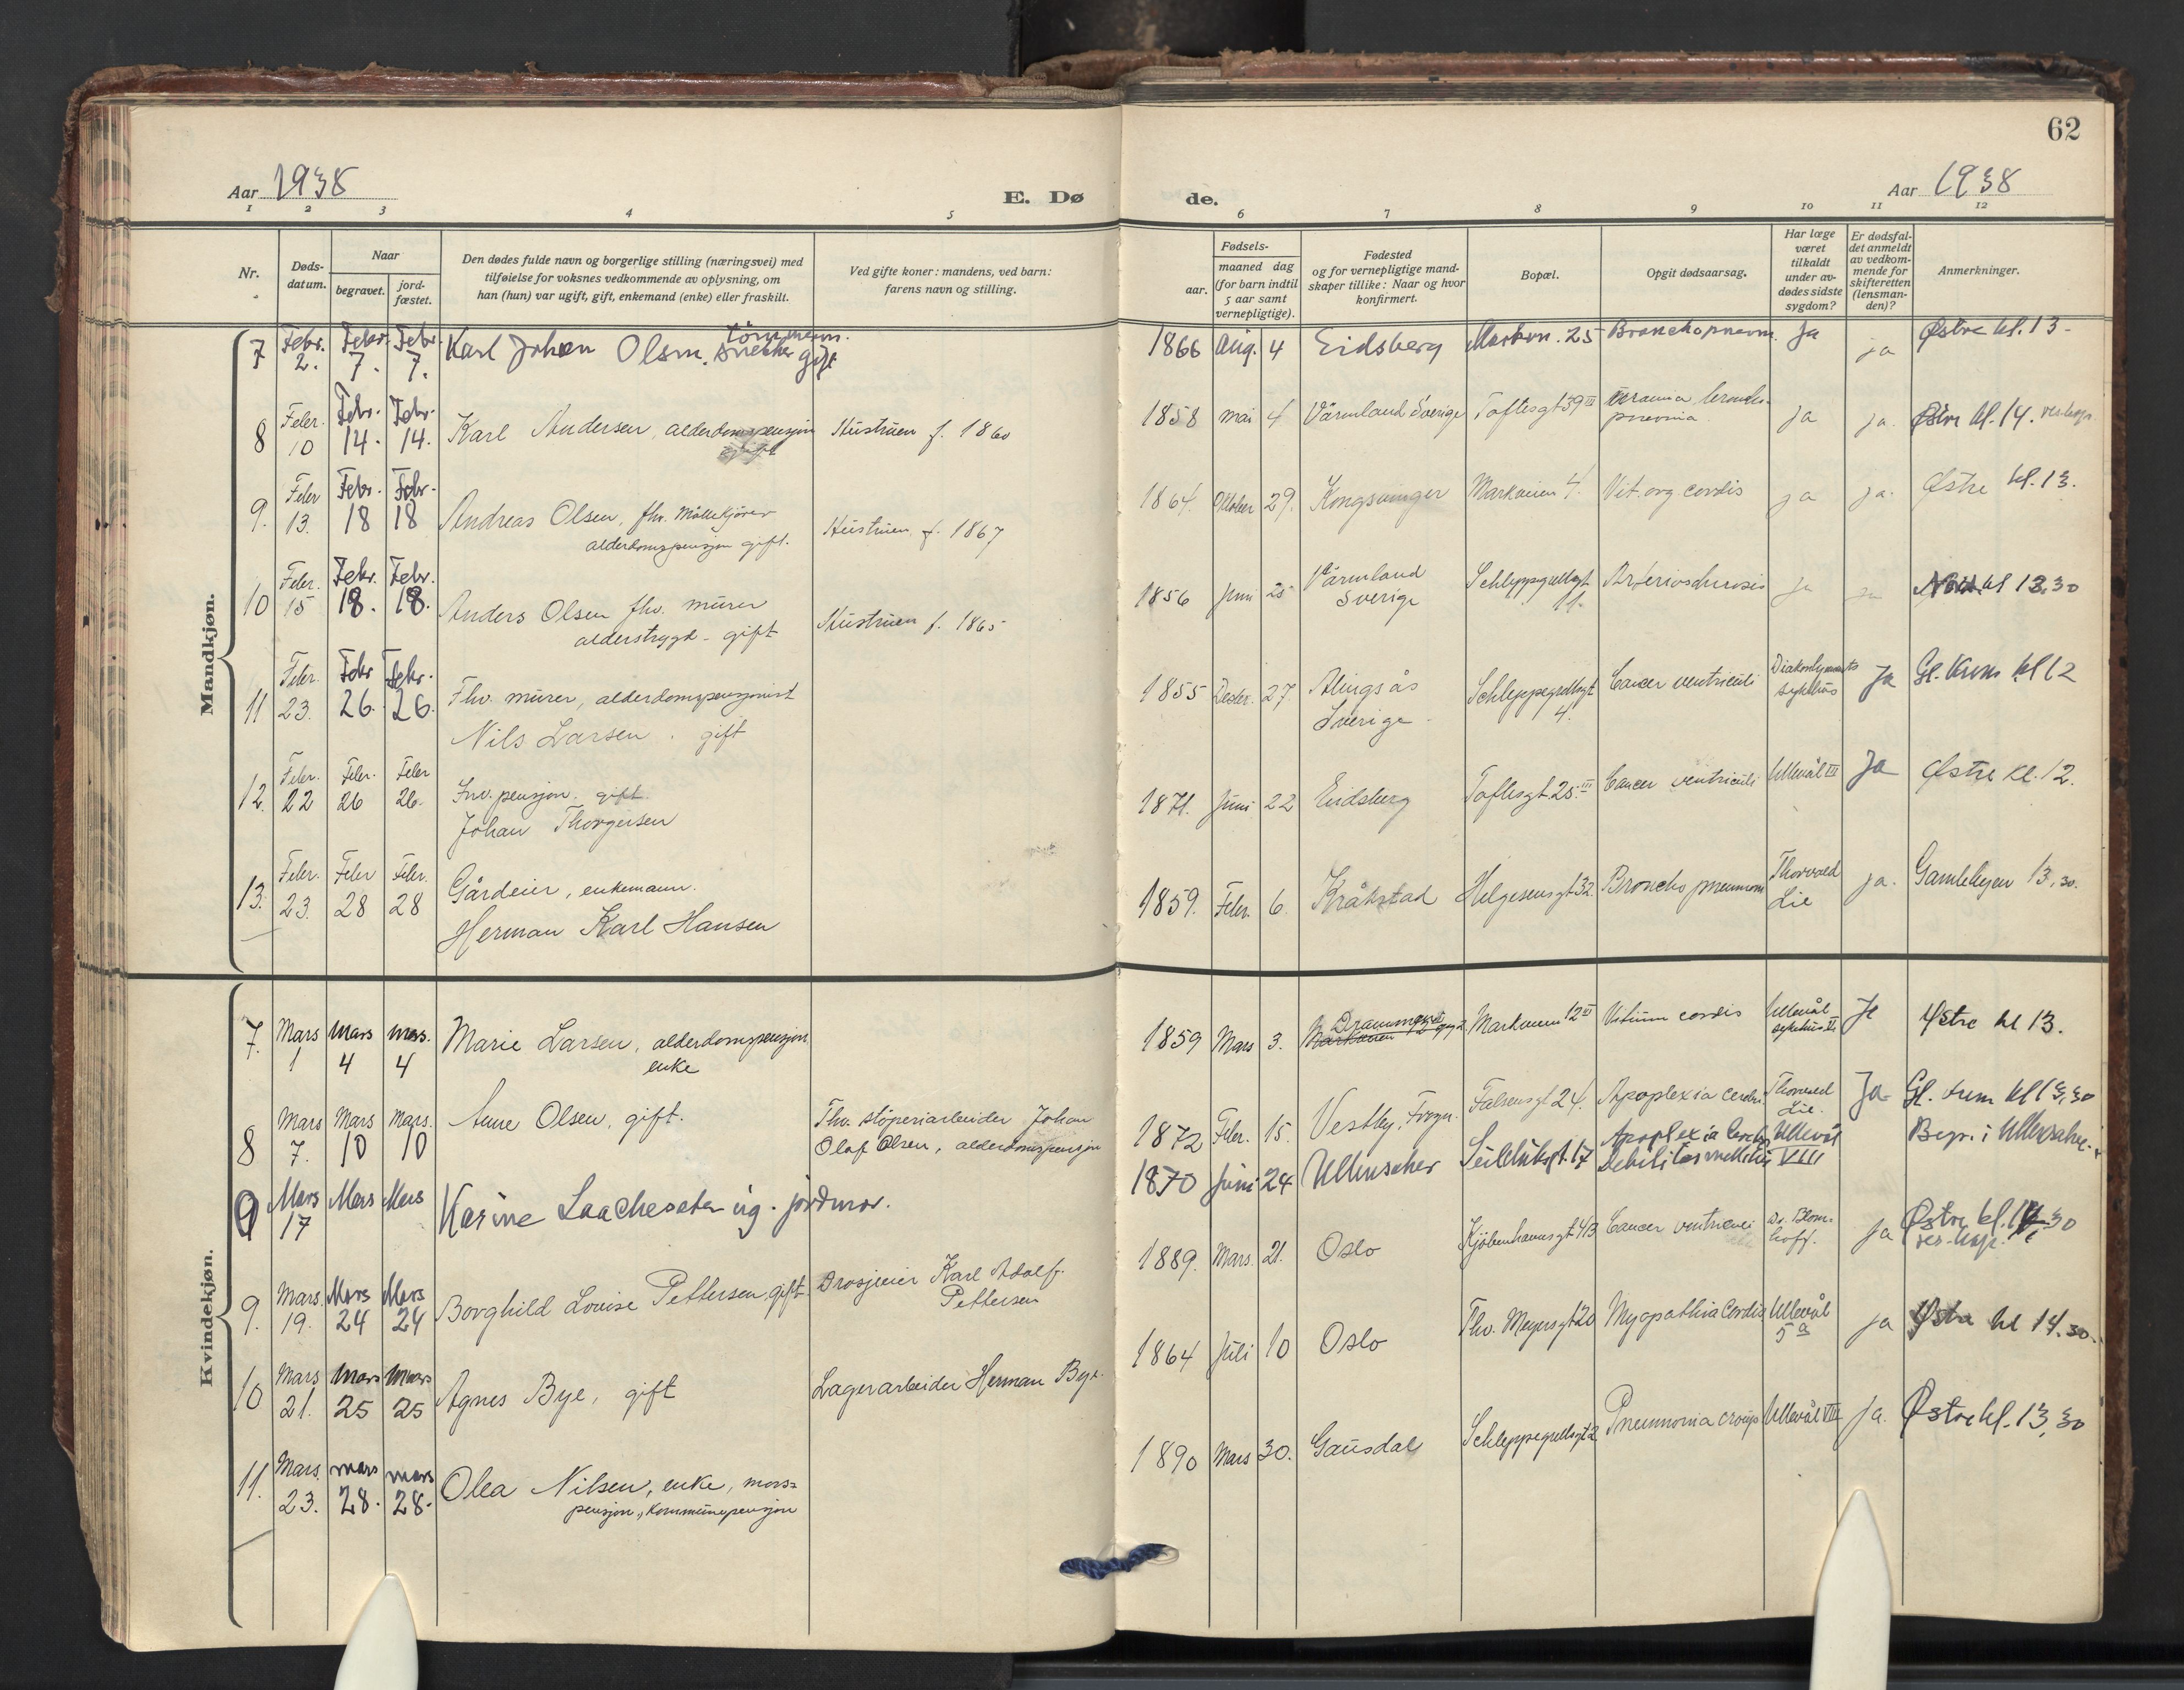 62
Aar 1938
E. Dø
de.
Aar 1938
1 2 3 4 5
6 7 8 9 10 11 12
Nr.
Døds-
datum.
Naar
begravet.
jord-
fæstet.
Den dødes fulde navn og borgerlige stilling (næringsvei) med
tilføielse for voksnes vedkommende av oplysning, om
han (hun) var ugift, gift, enkemand (enke) eller fraskilt.
Ved gifte koner: mandens, ved barn:
farens navn og stilling.
Fødsels-
aar.
maaned dag
(for barn indtil
5 aar samt
vernepligtige).
Fødested
og for vernepligtige mand-
skaper tillike: Naar og hvor
konfirmert.
Bopæl.
Opgit dødsaarsag.
Har læge
været
tilkaldt
under av-
dødes sidste
sygdom?
Er dødsfal-
det anmeldt
av vedkom-
mende for
skifteretten
(lensman-
den)?
Anmerkninger.
Mandkjøn.
7 Febr. 2. Febr. 7. Febr. 7. Karl Johan Olsen. snekker tømmerm. gift
1866 Aug. 4 Eidsberg Markvn. 25 Bronchopnevm. Ja ja Østre kl. 13
8 Febr. 10 Febr. 14. Febr. 14. Karl Andersen, alderdomspensjon
gift
Hustruen f. 1860
1858 mai 4 Värmland Sverige Toftesgt 39 III Uræmia broncho-
pnevmia
ja ja. Østre kl. 14.
9. Febr 13. Febr. 18 Febr. 18 Andreas Olsen, fhv. Møllekjører
alderdomspensjon gift.
Hustruen f. 1867
1864. Oktober 29. Kongsvinger Markveien 4. Vit. org. cordis ja ja. Østre kl. 13.
10 Febr. 15 Febr. 18. Febr. 18. Anders Olsen fhv. murer
alderstrygd - gift
Hustruen f. 1865
1856 Juni 25 Värmland
Sverige
Schleppegrellsgt
11.
Arteriosclerosis ja ja kl 13,30
11 Febr. 23. Febr 26. Febr. 26. Fhv. murer, alderdomspensjonist
Nils Larsen. gift
1855 Desbr. 27. Alingsås
Sverige
Schleppegrellsgt
4.
Cancer ventriculi Diakonhjemmets
sykehus
Ja Gl. Krem kl 12
12. Febr. 22 Febr. 26 Febr 26. Inv. pensjon. gift
Johan Thorgersen
1871. Juni 22 Eidsberg Toftesgt 25. III Cancer ventriculi Ullevål III Ja Østre kl. 12.
13. Febr. 23. Febr 28 Febr. 28 Gårdeier, enkemann.
Herman Karl Hansen
1859. Febr. 6. Kråkstad Helgesensgt 32. Broncho pneumoni Thorvald
Lie
ja. Gamlebyen 13,30.
Kvindekjøn.
7. Mars 1 Mars 4 Mars. 4 Marie Larsen, alderdomspensjon
enke
1859 Mars 3. Drammen Markveien 12 III Vitium cordis Ullevål
sykehus VI
Ja Østre kl 13.
8 Mars 7. Mars 10 Mars. 10 Anne Olsen, gift.
Fhv. støperiarbeider Johan
Olaf Olsen, alderdomspensjon
1872 Febr. 15. Vestby, Frogn. Falsensgt 24. Apoplexia cerebri Thorvald
Lie.
Ja Gl. krem kl 13,30
9 Mars 17 Mars Mars Karine Laacheseter ug. jordmor.
1870 Juni 24 Ullensaker Seilduksgt. 17 Apoplexia Cerebri
Debilitas mellitus
Ullevål
VIII
Begr. i Ullensaker.
9. Mars. 19. Mars 24 Mars 24 Borghild Lovise Pettersen, gift
Drosjeeier Karl Adolf
Pettersen
1889. Mars. 21. Oslo Kjøbenhavnsgt 4B Cancer ventriculi Dr. Blom-
hoff.
ja Østre kl.
10 Mars 21. Mars 25 Mars 25 Agnes Bye, gift
Lagerarbeider Herman Bye.
1864 Juli 10 Oslo Thv. Meyersgt 20 Myopathia Cordis Ullevål
5
ja Østre kl 14.30.
11. Mars. 23. Mars 28. Mars 28. Olea Nilsen, enke, mors-
pensjon, kommunepensjon
1890 Mars 30. Gausdal Schleppegrellsgt 2 Pneumonia croup Ullevål VIII Ja. Østre kl. 13,30